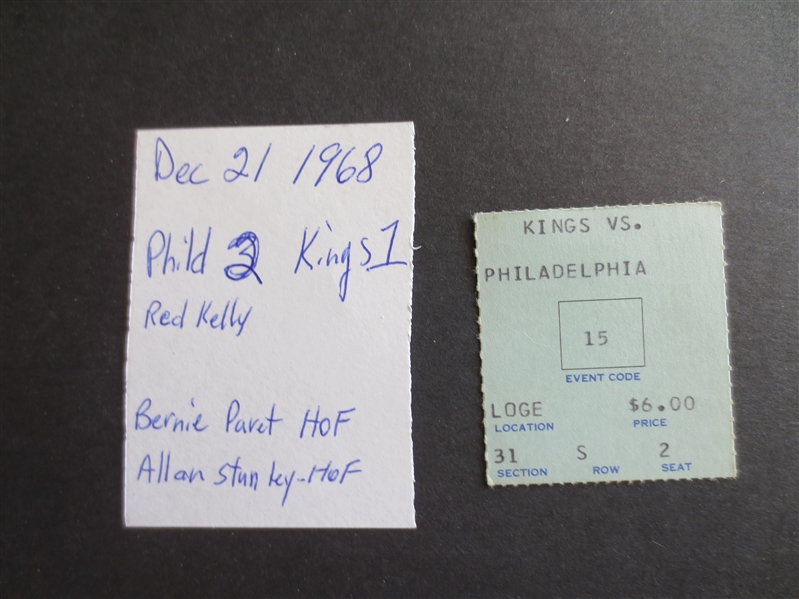 Dec 21 1968
Phild 3 Kings 1
Red Kelly
Bernie Paret HOF
Allan Stanley-HOF
KINGS VS.
PHILADELPHIA
15
EVENT CODE
LOGE $6.00
LOCATION PRICE
31 S 2
SECTION ROW SEAT